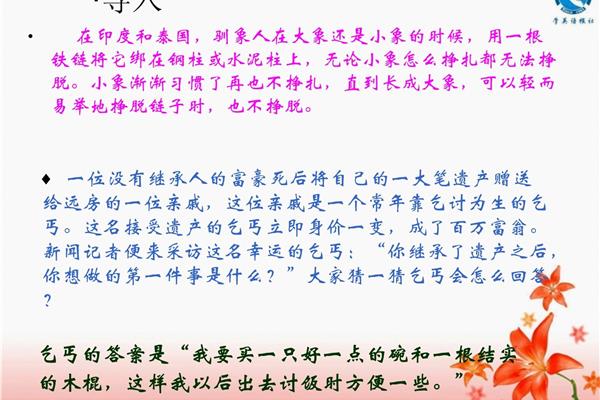 ·导入
• 在印度和泰国，驯象人在大象还是小象的时候，用一根
铁链将它绑在钢柱或水泥柱上，无论小象怎么挣扎都无法挣
脱。小象渐渐习惯了再也不挣扎，直到长成大象，可以轻而
易举地挣脱链子时，也不挣脱。
♦ 一位没有继承人的富豪死后将自己的一大笔遗产赠送
给远房的一位亲戚，这位亲戚是一个常年靠乞讨为生的乞
丐。这名接受遗产的乞丐立即身价一变，成了百万富翁。
新闻记者便来采访这名幸运的乞丐：“你继承了遗产之后，
你想做的第一件事是什么？”大家猜一猜乞丐会怎么回答
？
乞丐的答案是“我要买一只好一点的碗和一根结实
的木棍，这样我以后出去讨饭时方便一些。”